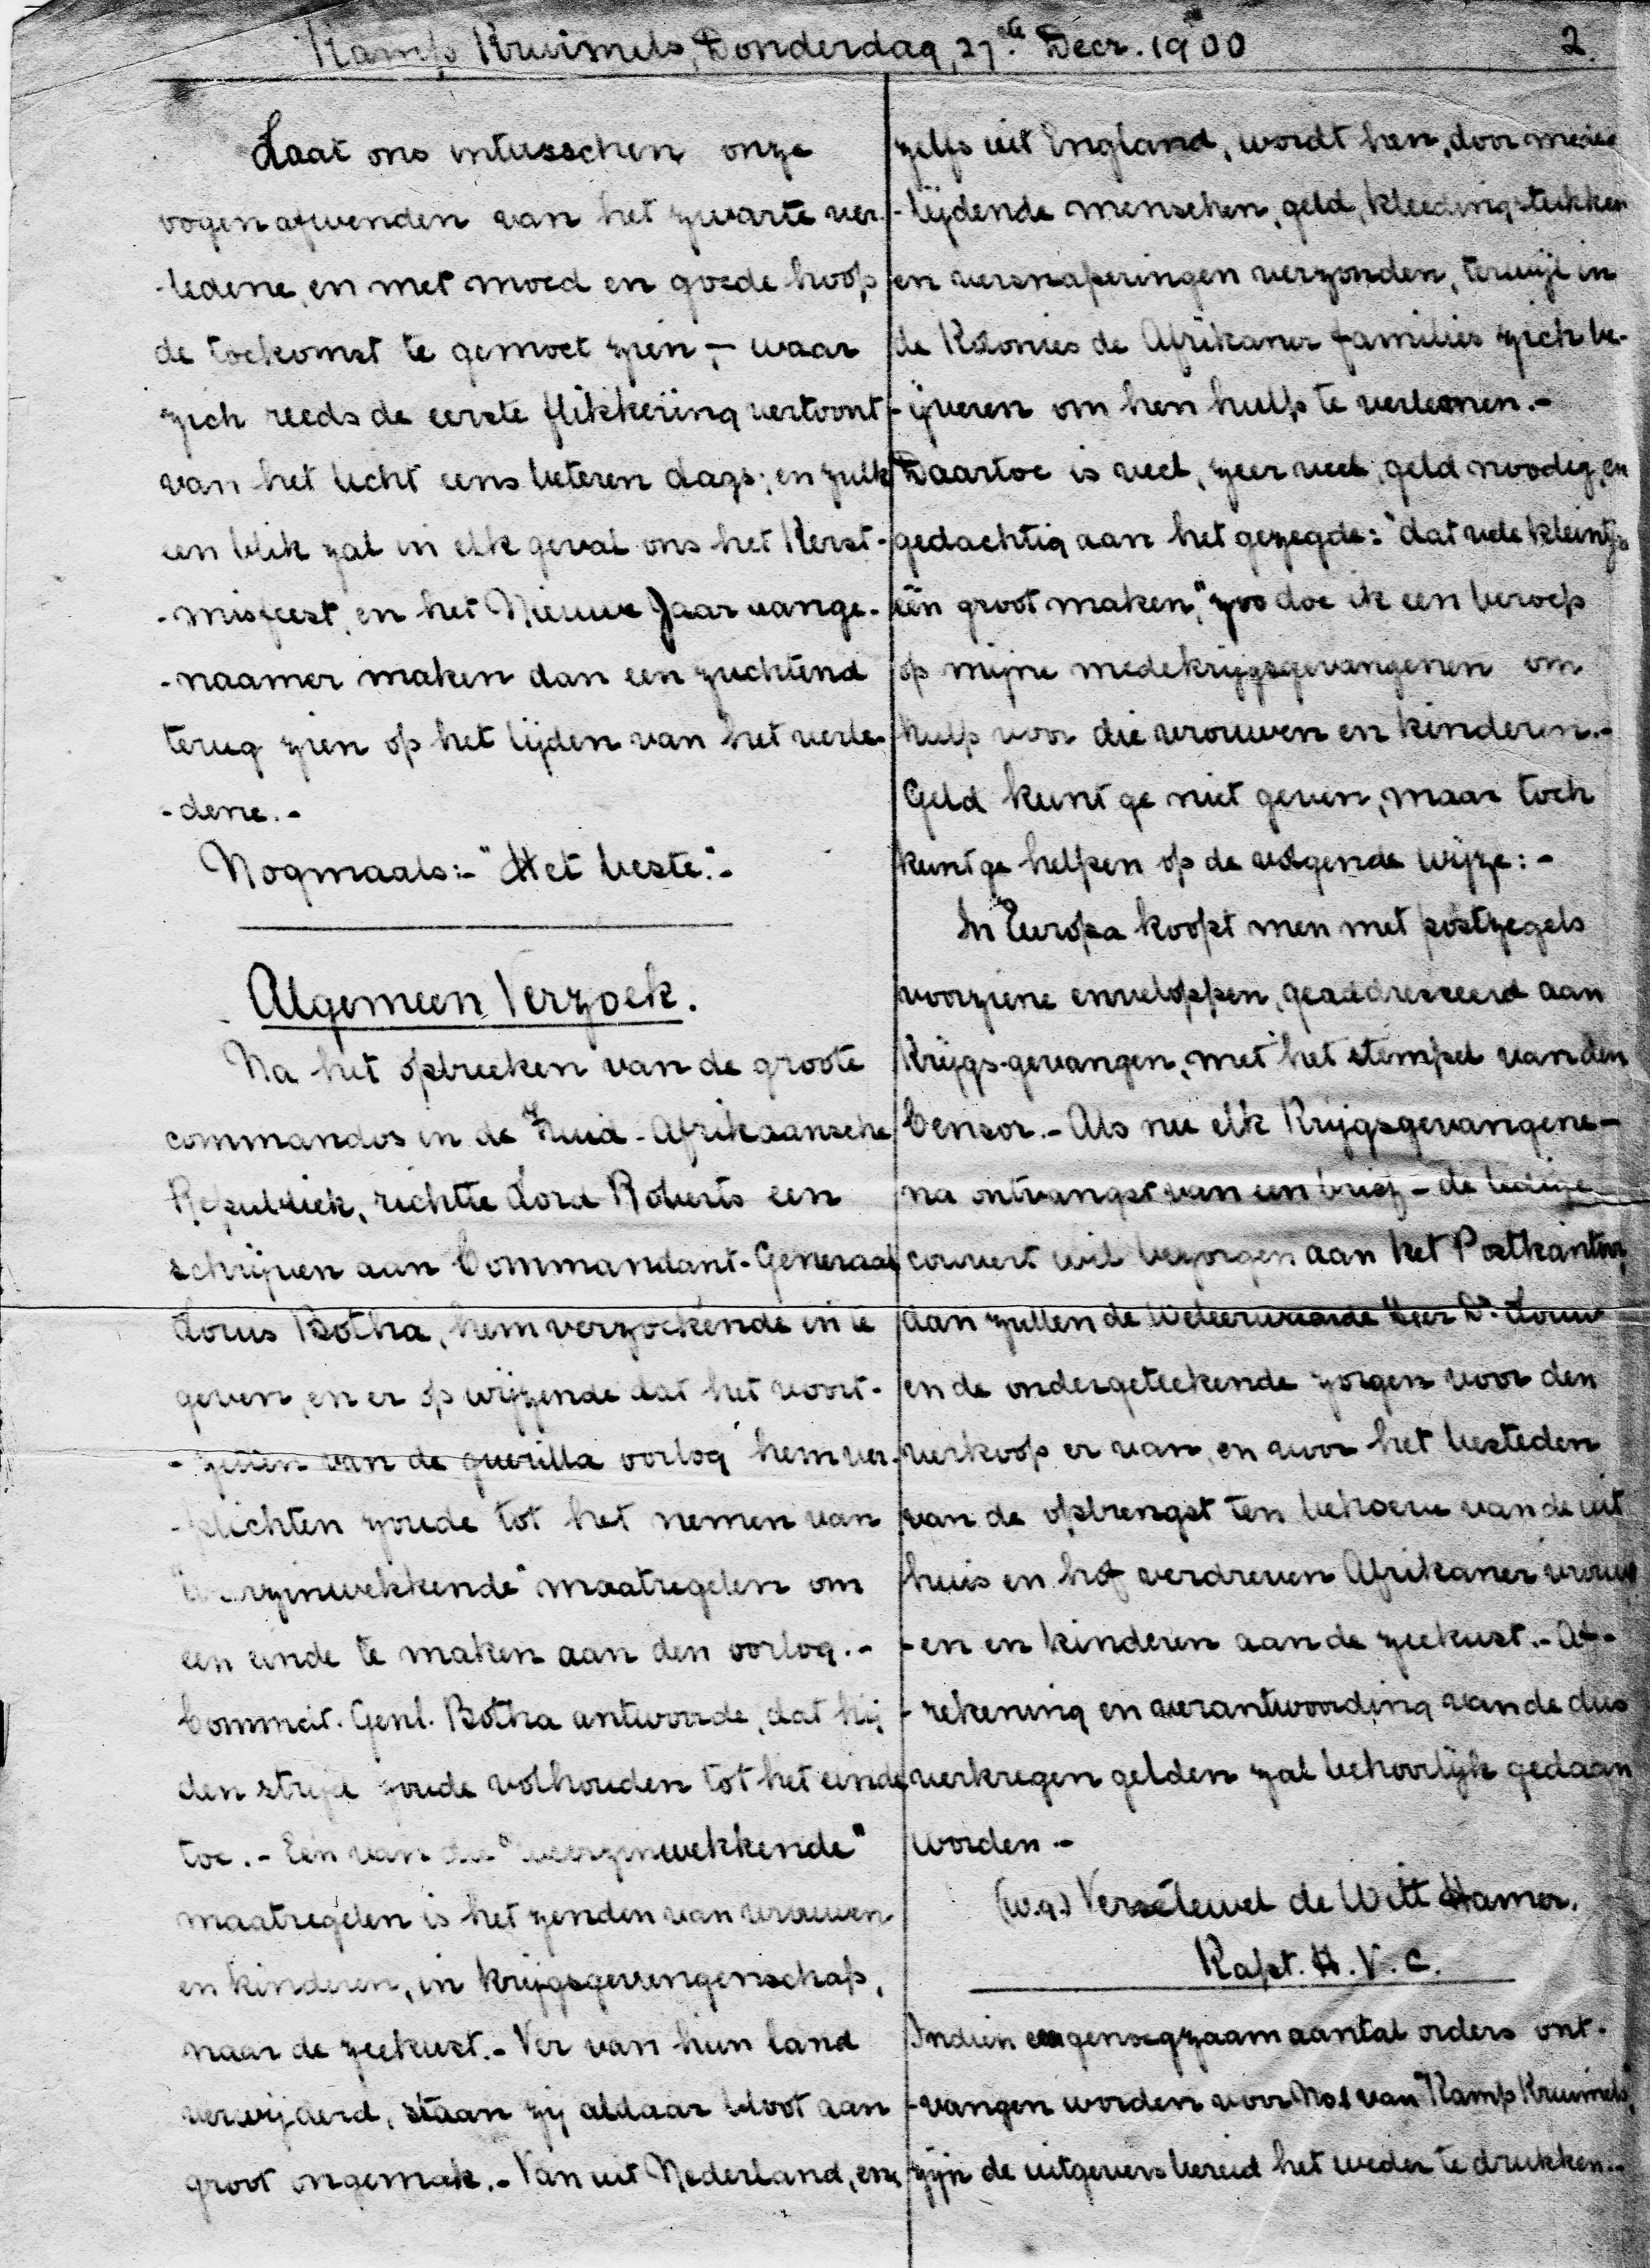 Kamp Kruimels, Donderdag, 27ste Decr. 1900 2.
Laat ons intusschen onze
oogen afwenden van het zwarte ver-
-ledene, en met moed en goede hoop
de toekomst te gemoet zien, – waar
zich reeds de eerste flikkering vertoont
van het licht eens beteren dags; en zulk
een blik zal in elk geval ons het Kerst-
-misfeest, en het Nieuwe Jaar aange-
-naamer maken dan een zuchtend
terug zien op het lijden van het verle-
-dene.-
Nogmaals:- "Het beste".-
Algemeen Verzoek.
Na het opbreeken van de groote
commandos in de Zuid-Afrikaansche
Republiek, richtte Lord Roberts een
schrijven aan Commandant-Generaal
Louis Botha, hem verzoekende in te
geven, en er op wijzende dat het voort-
-zetten van de guerilla oorlog hem ver-
-plichten zoude tot het nemen van
"weerzinwekkende" maatregelen om
een einde te maken aan den oorlog.-
Commdt. Genl. Botha antwoorde, dat hij
den strijd zoude volhouden tot het einde
toe.- Een van die "weerzinwekkende"
maatregelen is het zenden van vrouwen
en kinderen, in krijgsgevangenschap,
naar de zeekust.- Ver van hun land
verwijderd, staan zij aldaar bloot aan
groot ongemak.- Van uit Nederland, en
zelfs uit England, wordt hen, door mede-
-lijdende menschen, geld, kleedingstukken
en versnaperingen verzonden, terwijl in
de Kolonies de Afrikaner families zich be-
-ijveren om hen hulp te verleenen.-
Daartoe is veel, zeer veel, geld noodig, en
gedachtig aan het gezegde: "dat vele kleintjes
één groot maken," zoo doe ik een beroep
op mijne medekrijgsgevangenen om
hulp voor die vrouwen en kinderen.-
Geld kunt ge niet geven, maar toch
kunt ge helpen op de volgende wijze:-
In Europa koopt men met postzegels
voorziene enveloppen, geaddresseerd aan
Krijgs-gevangen, met het stempel van den
Censor.- Als nu elk Krijgsgevangene -
na ontvangst van een brief - de ledige
couvert wil bezorgen aan het Postkantoor,
dan zullen de Weleerwaarde Heer Ds. Louw
en de ondergeteekende zorgen voor den
verkoop er van, en voor het besteden
van de opbrengst ten behoeve van de uit
huis en hof verdreven Afrikaner vrouw-
-en en kinderen aan de zeekust.- Af-
-rekening en verantwoording van de dus
verkregen gelden zal behoorlijk gedaan
worden.-
(w.g.) Verselewel de Witt Hamer.
Kapt. H. V. C.
Indien een genoegzaam aantal orders ont-
-vangen worden voor No 1 van "Kamp Kruimels,"
zijn de uitgevers bereid het weder te drukken.-